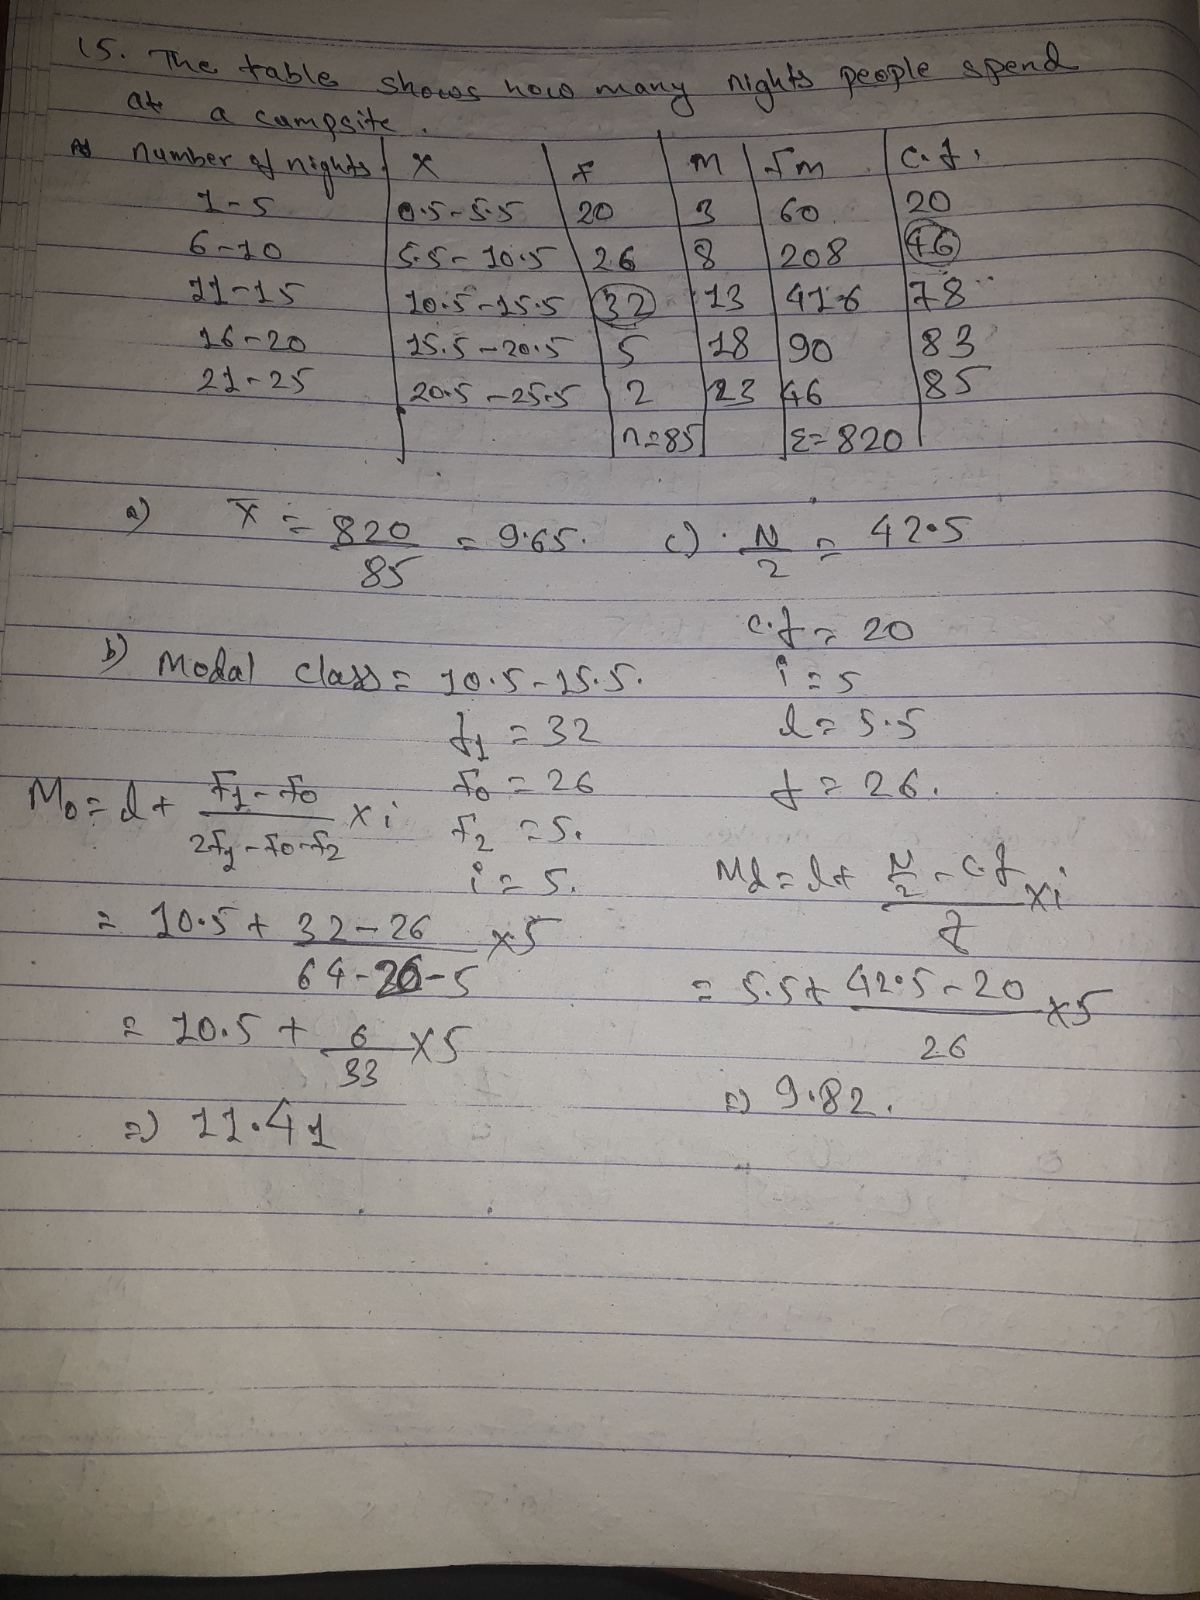 15. The table shows how many nights people spend
at a campsite.
number of nights x f m fm c.f.
1-5 0.5-5.5 20 3 60 20
6-10 5.5-10.5 26 8 208 46
11-15 10.5-15.5 32 13 416 78
16-20 15.5-20.5 5 18 90 83
21-25 20.5-25.5 2 23 46 85
n=85 Σ=820
a) x̄ = 820/85 = 9.65.
b) Modal class = 10.5-15.5.
f1 = 32
f0 = 26
f2 = 5.
i = 5.
Mo = l + (f1-f0)/(2f1-f0-f2) × i
= 10.5 + (32-26)/(64-26-5) × 5
= 10.5 + 6/33 × 5
=) 11.41
c) N/2 = 42.5
c.f = 20
i = 5
l = 5.5
f = 26.
Md = l + (N/2 - c.f)/f × i
= 5.5 + (42.5-20)/26 × 5
=) 9.82.